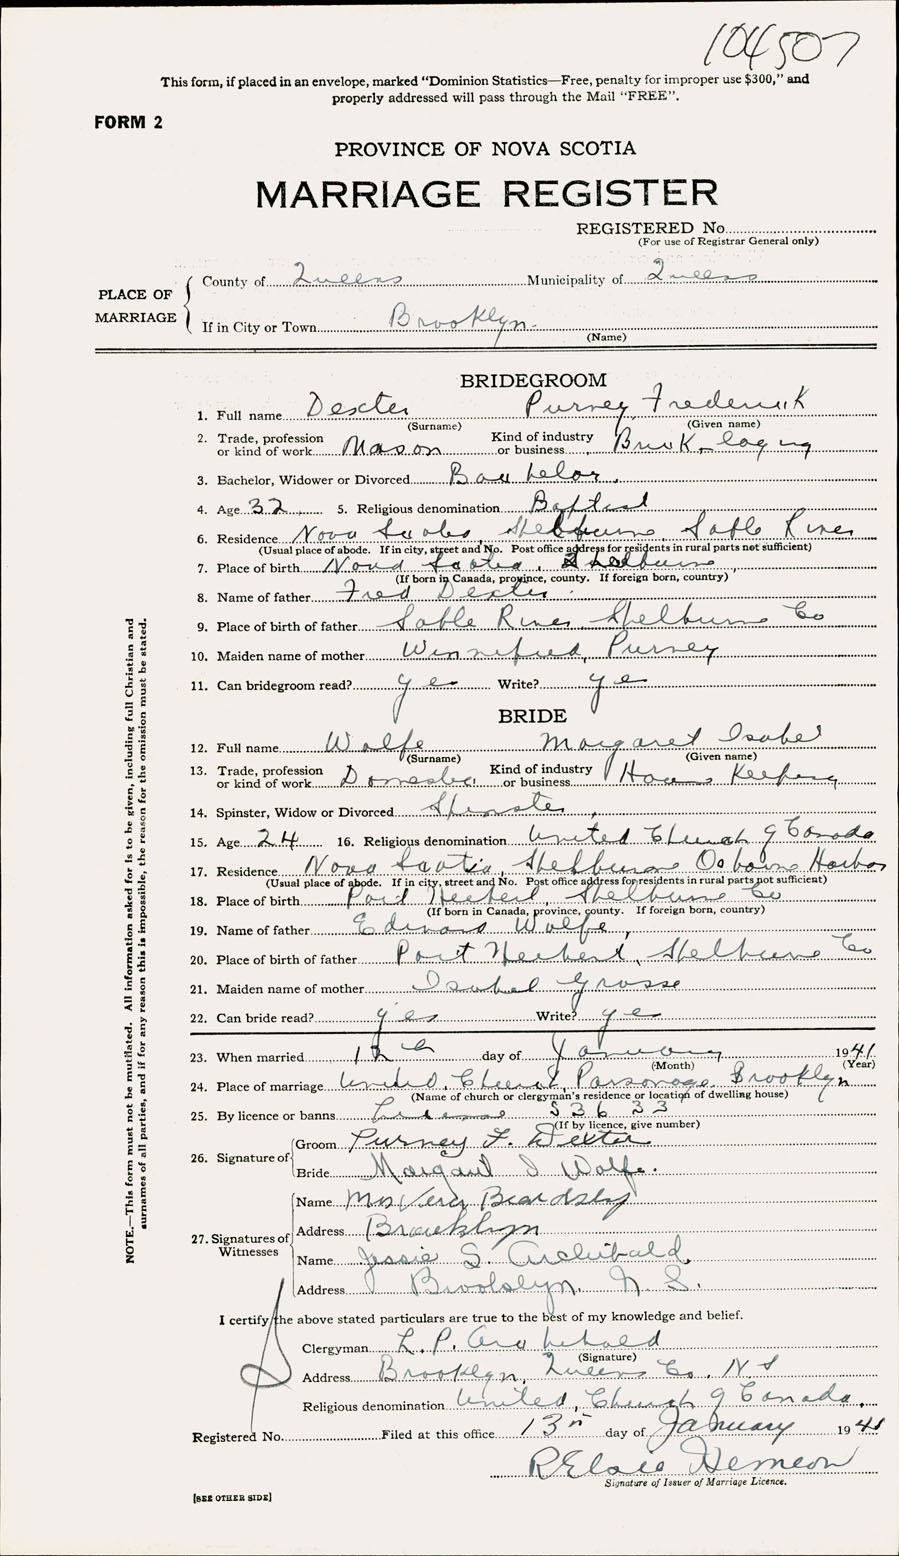 104507
This form, if placed in an envelope, marked “Dominion Statistics—Free, penalty for improper use $300,” and
properly addressed will pass through the Mail “FREE”.
FORM 2
PROVINCE OF NOVA SCOTIA
MARRIAGE REGISTER
REGISTERED No.
(For use of Registrar General only)
PLACE OF MARRIAGE
County of Queens Municipality of Queens
If in City or Town Brooklyn
(Name)
BRIDEGROOM
1. Full name Dexter Purney Frederick
(Surname) (Given name)
2. Trade, profession or kind of work Mason Kind of industry or business Brick-laying
3. Bachelor, Widower or Divorced Bachelor.
4. Age 32 5. Religious denomination Baptist
6. Residence Nova Scotia, Shelburne, Sable River
(Usual place of abode. If in city, street and No. Post office address for residents in rural parts not sufficient)
7. Place of birth Nova Scotia, Shelburne
(If born in Canada, province, county. If foreign born, country)
8. Name of father Fred Dexter
9. Place of birth of father Sable River Shelburne Co
10. Maiden name of mother Winnifred Purney
11. Can bridegroom read? yes Write? yes
BRIDE
12. Full name Wolfe Margaret Isabel
(Surname) (Given name)
13. Trade, profession or kind of work Domestic Kind of industry or business House Keeping
14. Spinster, Widow or Divorced Spinster
15. Age 24 16. Religious denomination United Church of Canada
17. Residence Nova Scotia, Shelburne Osborne Harbor
(Usual place of abode. If in city, street and No. Post office address for residents in rural parts not sufficient)
18. Place of birth Port Herbert, Shelburne Co
(If born in Canada, province, county. If foreign born, country)
19. Name of father Edward Wolfe,
20. Place of birth of father Port Herbert, Shelburne Co
21. Maiden name of mother Isabel Grosse
22. Can bride read? yes Write? yes
23. When married 12th day of January 1941
(Month) (Year)
24. Place of marriage United Church Parsonage Brooklyn
(Name of church or clergyman's residence or location of dwelling house)
25. By licence or banns License 53633
(If by licence, give number)
26. Signature of
Groom Purney F. Dexter
Bride Margaret I Wolfe.
27. Signatures of Witnesses
Name Mrs Vera Beardsley
Address Brooklyn
Name Jessie S. Archibald.
Address Brooklyn, N.S.
I certify the above stated particulars are true to the best of my knowledge and belief.
Clergyman L. P. Archibald
(Signature)
Address Brooklyn, Queens Co. N S
Religious denomination United Church of Canada.
Registered No. Filed at this office 13th day of January 1941
R Elsie Hemeon
Signature of Issuer of Marriage Licence.
[SEE OTHER SIDE]
NOTE.—This form must not be mutilated. All information asked for is to be given, including full Christian and
surnames of all parties, and if for any reason this is impossible, the reason for the omission must be stated.